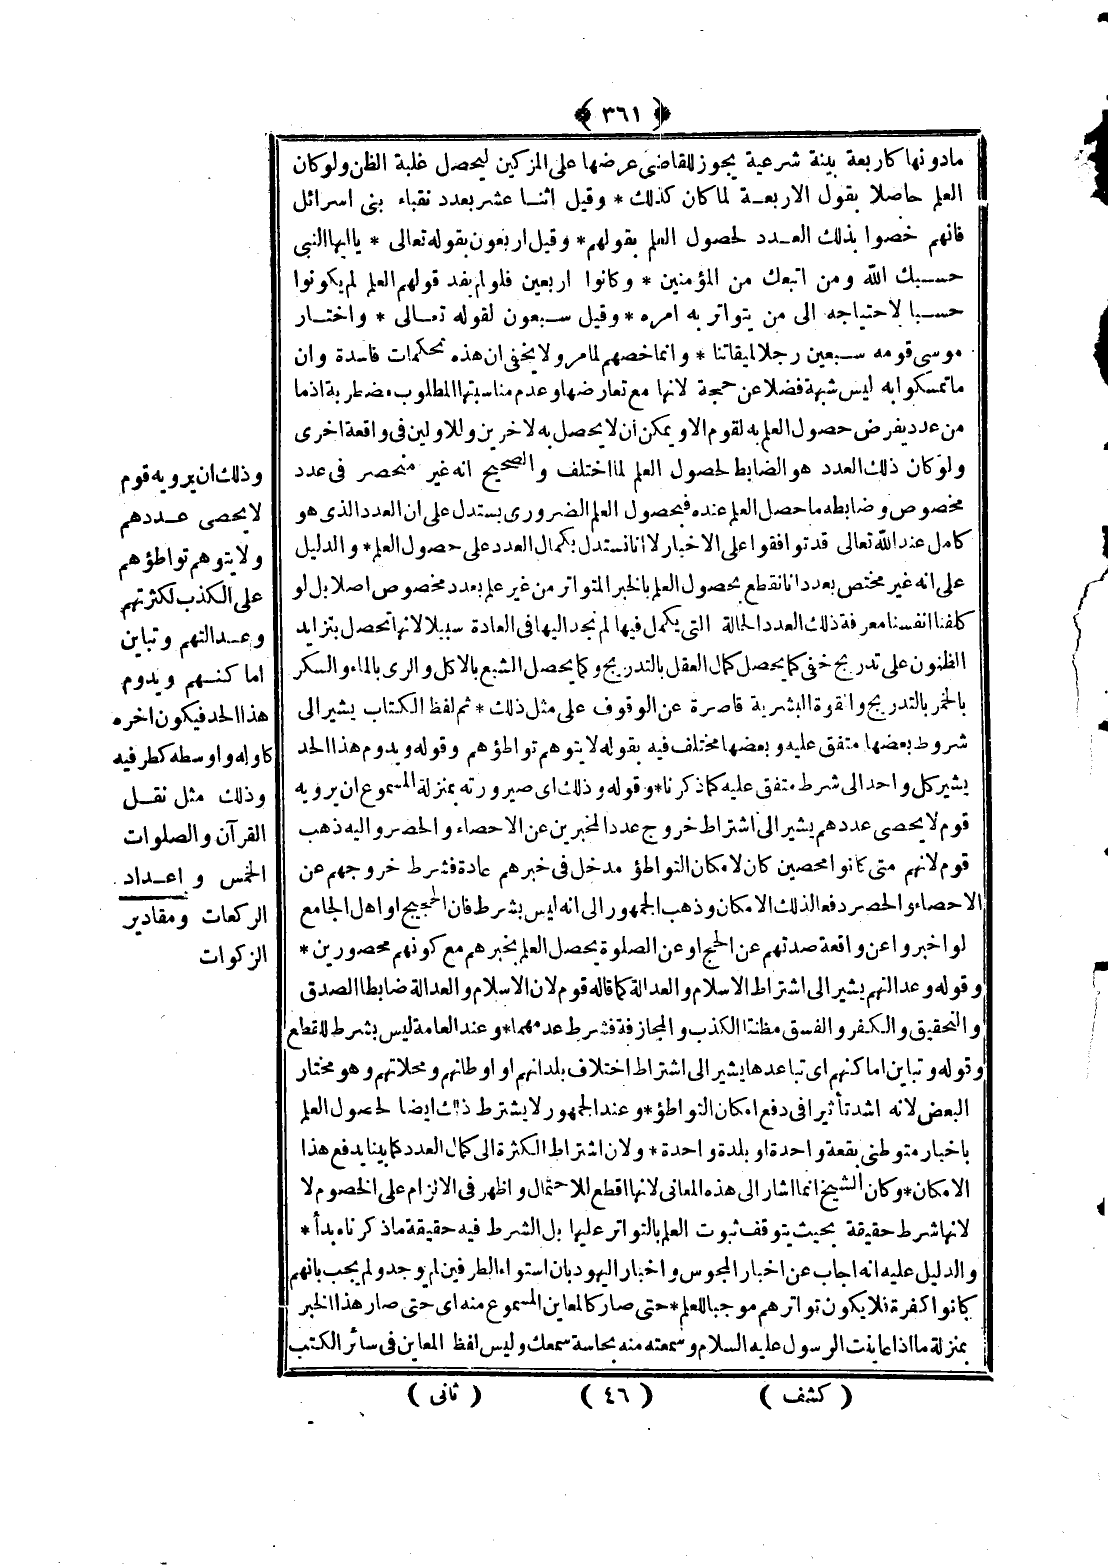 ﴿ ٣٦١ ﴾
مادونها كاربعة بينة شرعية يجوز للقاضى عرضها على المزكين ليحصل غلبة الظن ولو كان
العلم حاصلا بقول الاربعة لما كان كذلك * وقيل اثنا عشر بعدد نقباء بنى اسرائل
فانهم خصوا بذلك العدد لحصول العلم بقولهم * وقيل اربعون بقوله تعالى * ياايها النبى
حسبك الله ومن اتبعك من المؤمنين * وكانوا اربعين فلو لم يفد قولهم العلم لم يكونوا
حسبا لاحتياجه الى من يتواتر به امره * وقيل سبعون لقوله تعالى * واختار
موسى قومه سبعين رجلا لميقاتنا * وانما خصهم لما مر ولا يخفى ان هذه تحكمات فاسدة وان
ما تمسكوا به ليس شبهة فضلا عن حجة لانها مع تعارضها وعدم مناسبتها المطلوب مضطربة اذ ما
من عدد يفرض حصول العلم به لقوم الا ويمكن ان لا يحصل به لاخرين وللاولين فى واقعة اخرى
ولو كان ذلك العدد هو الضابط لحصول العلم لما اختلف والصحيح انه غير منحصر فى عدد
مخصوص وضابطه ما حصل العلم عنده فبحصول العلم الضرورى يستدل على ان العدد الذى هو
كامل عند الله تعالى قد توافقوا على الاخبار لا انا نستدل بكمال العدد على حصول العلم * والدليل
على انه غير مختص بعدد انا نقطع بحصول العلم بالخبر المتواتر من غير علم بعدد مخصوص اصلا بل لو
كلفنا انفسنا معرفة ذلك العدد الحالة التى يكمل فيها لم نجد اليها فى العادة سبيلا لانها تحصل بتزايد
الظنون على تدريج خفى كما يحصل كمال العقل بالتدريج وكما يحصل الشبع بالاكل والرى بالماء والسكر
بالخمر بالتدريج والقوة البشرية قاصرة عن الوقوف على مثل ذلك * ثم لفظ الكتاب يشير الى
شروط بعضها متفق عليه وبعضها مختلف فيه بقوله لا يتوهم تواطؤهم وقوله ويدوم هذا الحد
يشير كل واحد الى شرط متفق عليه كما ذكرنا * وقوله وذلك اى صيرورته بمنزلة المسموع ان يرويه
قوم لا يحصى عددهم يشير الى اشتراط خروج عدد المخبرين عن الاحصاء والحصر واليه ذهب
قوم لانهم متى كانوا محصين كان لامكان التواطؤ مدخل فى خبرهم عادة فشرط خروجهم عن
الاحصاء والحصر دفعا لذلك الامكان وذهب الجمهور الى انه ليس بشرط فان الحجيج او اهل الجامع
لو اخبروا عن واقعة صدتهم عن الحج او عن الصلوة يحصل العلم بخبرهم مع كونهم محصورين *
وقوله وعدالتهم يشير الى اشتراط الاسلام والعدالة كما قاله قوم لان الاسلام والعدالة ضابطا الصدق
والتحقيق والكفر والفسق مظنتا الكذب والمجازفة فشرط عدمهما * وعند العامة ليس بشرط للقطع
وقوله وتباين اماكنهم اى تباعدها يشير الى اشتراط اختلاف بلدانهم او اوطانهم ومحلاتهم وهو مختار
البعض لانه اشد تأثيرا فى دفع امكان التواطؤ * وعند الجمهور لا يشترط ذلك ايضا لحصول العلم
باخبار متوطنى بقعة واحدة او بلدة واحدة * ولان اشتراط الكثرة الى كمال العدد كما بينا يدفع هذا
الامكان * وكان الشيخ انما اشار الى هذه المعانى لانها اقطع للاحتمال واظهر فى الالزام على الخصوم لا
لانها شرط حقيقة بحيث يتوقف ثبوت العلم بالتواتر عليها بل الشرط فيه حقيقة ما ذكرناه بدأ *
والدليل عليه انه اجاب عن اخبار المجوس واخبار اليهود بان استواء الطرفين لم يوجد ولم يجب بانهم
كانوا كفرة فلا يكون تواترهم موجبا للعلم * حتى صار كالمعاين المسموع منه اى حتى صار هذا الخبر
بمنزلة ما اذا عاينت الرسول عليه السلام وسمعته منه بحاسة سمعك وليس لفظ المعاين فى سائر الكتب
وذلك ان يرويه قوم
لا يحصى عددهم
ولا يتوهم تواطؤهم
على الكذب لكثرتهم
وعدالتهم وتباين
اماكنهم ويدوم
هذا الحد فيكون اخره
كاوله واوسطه كطرفيه
وذلك مثل نقل
القرآن والصلوات
الخمس واعداد
الركعات ومقادير
الزكوات
( كشف ) ( ٤٦ ) ( ثانى )